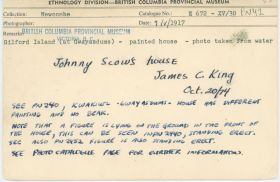 ETHNOLOGY DIVISION—BRITISH COLUMBIA PROVINCIAL MUSEUM
Collection Newcombe Catalogue No. E 672 - XV/30 PN 42
Remarks BRITISH COLUMBIA PROVINCIAL MUSEUM Date: 1917
Gilford Island (at Gwayasdums) - painted house - photo taken from water
Johnny Scow's house
James C. King
Oct. 20/74
SEE PN 240, KWAKIUTL - GWAYASDUMS - HOUSE HAS DIFFERENT
PAINTING AND NO BEAK.
NOTE THAT A FIGURE IS LYING ON THE GROUND IN THE FRONT OF
THE HOUSE, THIS CAN BE SEEN IN PN 240, STANDING ERECT.
SEE ALSO PN 252 FIGURE IS ALSO STANDING ERECT.
SEE PHOTO CATALOGUE PAGE FOR FURTHER INFORMATION.